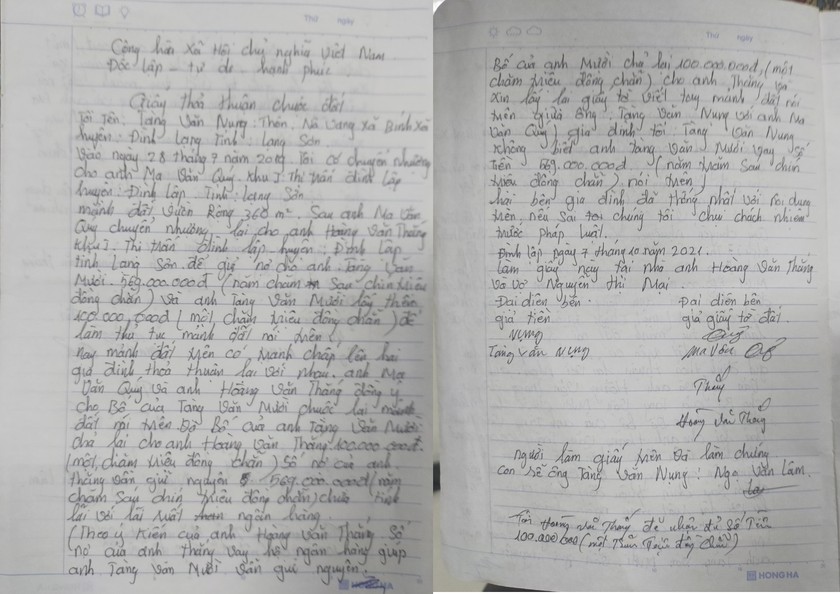 Thứ ngày
Cộng hòa Xã Hội chủ nghĩa Việt Nam
Độc lập - tự do hạnh phúc
Giấy thỏa thuận chuộc đất
Tôi Tên: Tằng Văn Nụng: Thôn: Nà Vang Xã Bính Xá
huyện: Đình Lập Tỉnh: Lạng Sơn
Vào ngày 28 tháng 7 năm 2019 Tôi có chuyển nhượng
cho anh Mạ Văn Quý. Khu I. Thị trấn Đình Lập
huyện: Đình Lập. Tỉnh: Lạng Sơn
mảnh đất vườn Rộng 360 m². Sau anh Mạ Văn
Quý chuyển nhường lại cho anh Hoàng Văn Thắng
Khu I. Thị trấn Đình lập huyện: Đình Lập
tỉnh Lạng Sơn để giữ nợ cho anh Tằng Văn
Mười. 569.000.000đ (năm chăm Sau chín triệu
đồng chẵn) Và anh Tằng Văn Mười lấy thêm
100.000.000đ (một chăm triệu đồng chẵn) để
làm thủ tục mảnh đất nói trên
nay mảnh đất trên có tranh chấp lên hai
gia đình thỏa thuận lại với nhau. anh Mạ
Văn Quý và anh Hoàng Văn Thắng đồng ý
cho Bố của Tằng Văn Mười chuộc lại mảnh
đất nói trên Và Bố của anh Tằng Văn Mười
chả lại cho anh Hoàng Văn Thắng 100.000.000đ.
(một chăm triệu đồng chẵn) Số nợ của anh
thắng vẫn giữ nguyên 569.000.000đ (năm
chăm Sau chín triệu đồng chẵn) chưa tính
lãi với lãi xuất ngân hàng.
(Theo ý Kiến của anh Hoàng Văn Thắng Số
nợ của anh thắng vay hộ ngân hàng giúp
anh Tằng Văn Mười vẫn giữ nguyên.
HONG HA
Thứ ngày
Bố của anh Mười chả lại 100.000.000đ, (một
chăm triệu đồng chẵn) cho anh Thắng và
xin lấy lại giấy tờ viết tay mảnh đất nói
trên giữa ông: Tằng Văn Nụng với anh Mạ
Văn Quý) gia đình tôi Tằng Văn Nụng
không biết anh Tằng Văn Mười vay Số
tiền 569.000.000đ (năm trăm Sau chín
triệu đồng chẵn) nói trên)
hai bên gia đình đã thống nhất với nội dung
trên nếu Sai tôi chúng tôi chịu chách nhiệm
trước pháp luật.
Đình lập ngày 7 tháng 10 năm 2021.
làm giấy này tại nhà anh Hoàng Văn Thắng
và vợ Nguyễn thị Mại
Đại diện bên Đại diện bên
giả tiền giả giấy tờ đất.
Nụng Quý
Tằng Văn Nụng Mạ Văn Quý
Thắng
Hoàng Văn Thắng
người làm giấy trên và làm chứng
con rể ông Tằng Văn Nụng: Ngô Văn Lâm.
Tôi Hoàng Văn Thắng đã nhận đủ Số Tiền
100.000.000 (một Trăm Triệu đồng Chẵn)
HONG HA